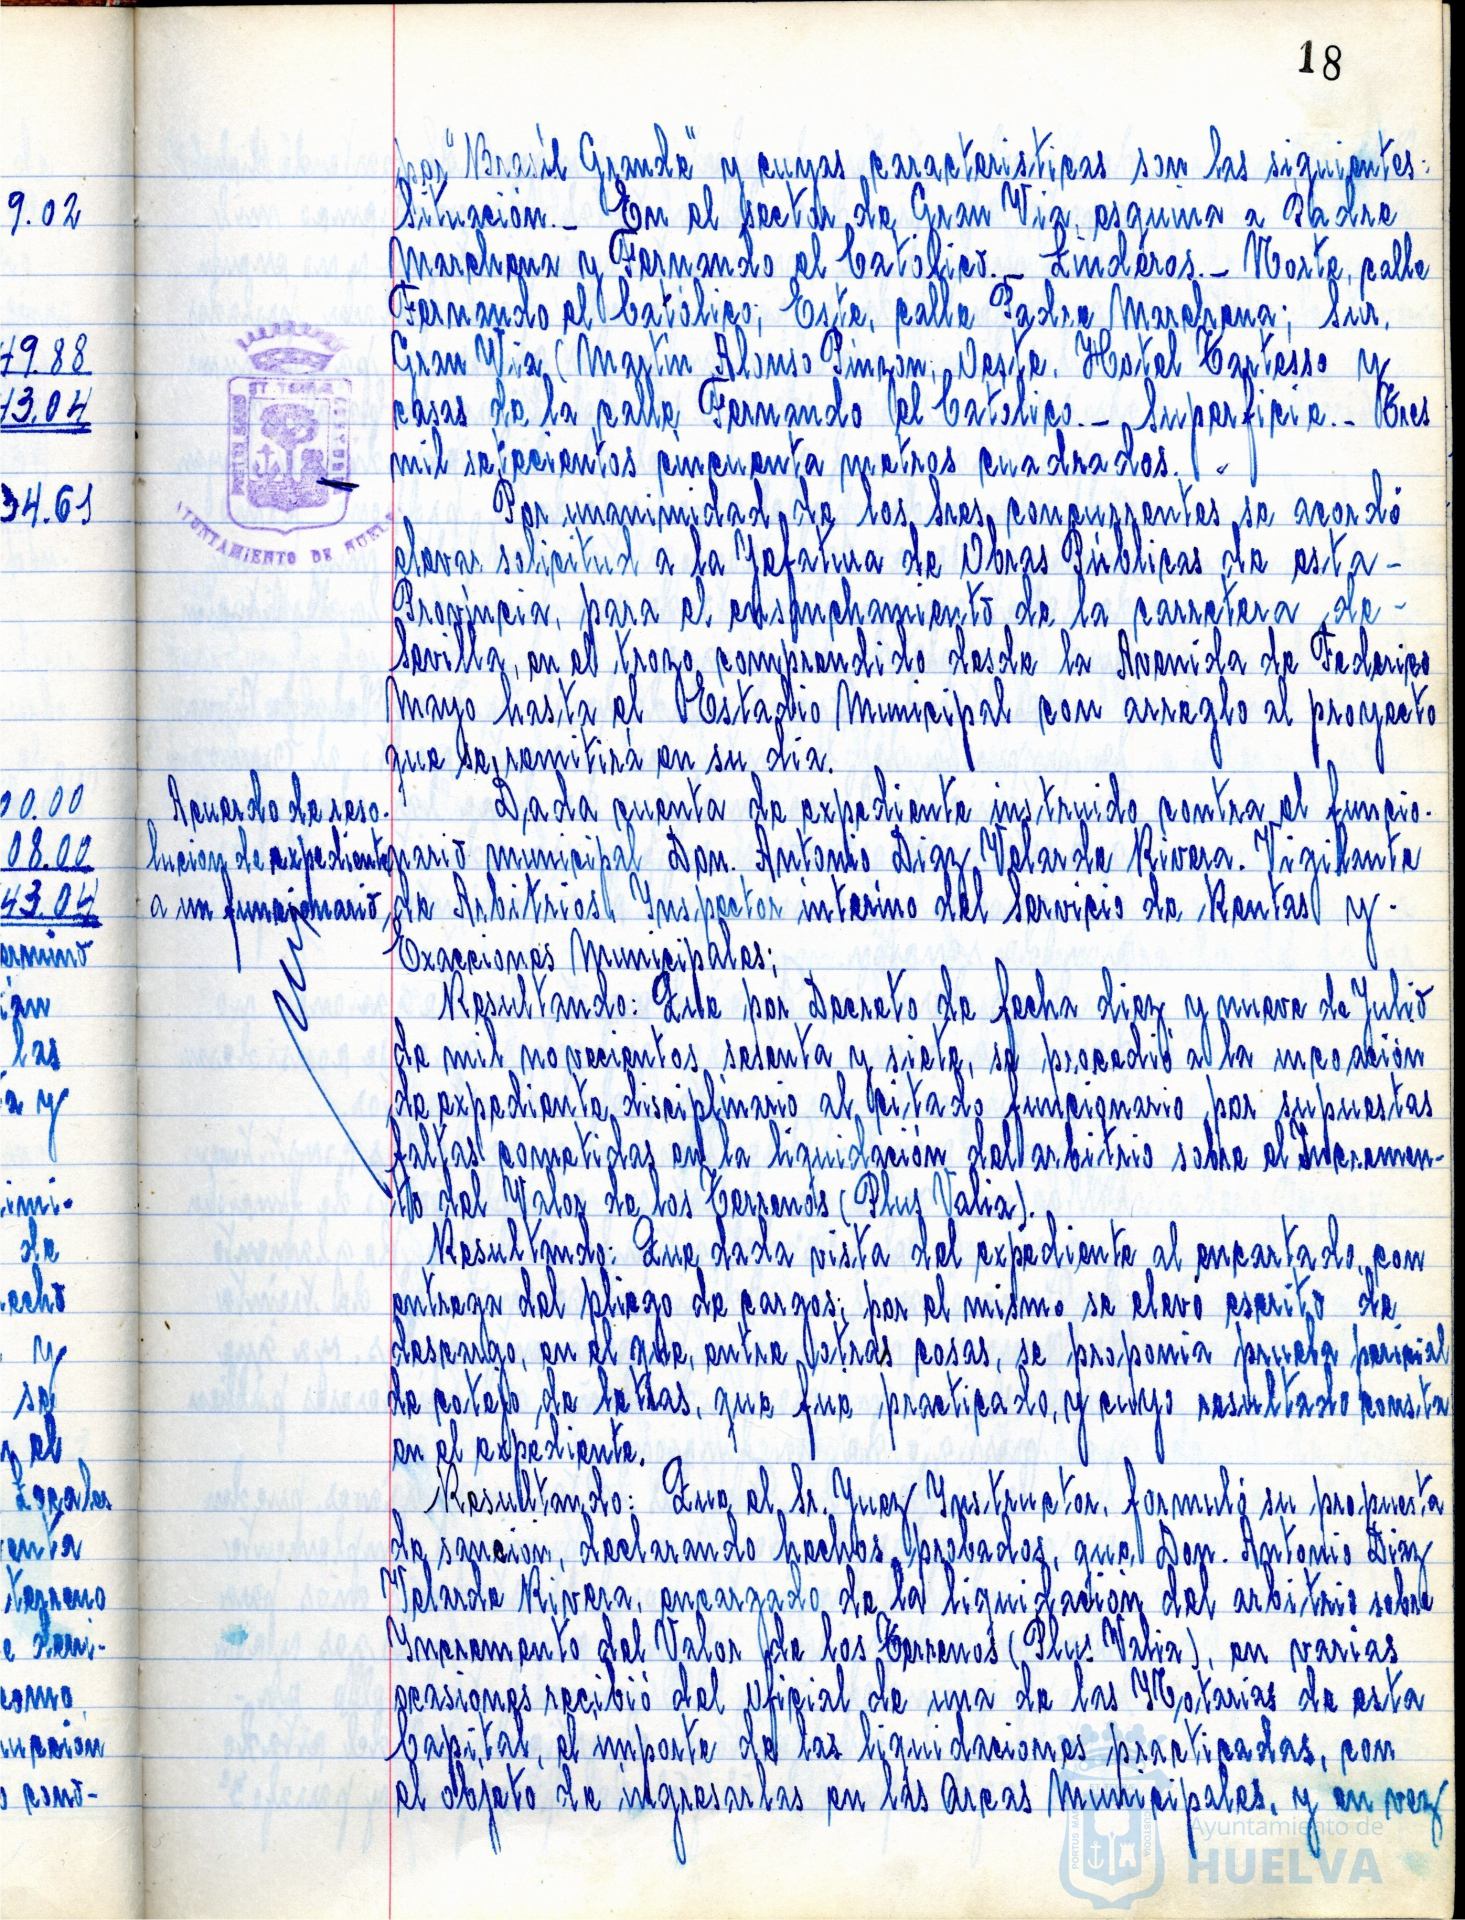 18
9.02
79.88
13.04
34.61
00.00
08.00
43.04
ermino
las
a y
imi-
de
echo
y
se
y el
Locales
enta
terreno
e deri-
como
ucción
o cono-
AYUNTAMIENTO DE HUELVA
Acuerdo de reso-
lución de expediente
a un funcionario,
por "Brasil Grande" y cuyas caracteristicas son las siguientes:
Situación._ En el sector de Gran Via, esquina a Padre
Marchena y Fernando el Católico._ Linderos._ Norte, calle
Fernando el Católico; Este, calle Padre Marchena; Sur,
Gran Via (Martin Alonso Pinzon; Oeste, Hotel Tartesso y
casas de la calle Fernando el Católico._ Superficie._ Tres
mil setecientos cincuenta metros cuadrados.
Por unanimidad de los Sres. concurrentes se acordó
elevar solicitud a la Jefatura de Obras Públicas de esta-
Provincia, para el ensanchamiento de la carretera de-
Sevilla, en el trozo comprendido desde la Avenida de Federico
Mayo hasta el Estadio Municipal con arreglo al proyecto
que se remitirá en su dia.
Dada cuenta de expediente instruido contra el funcio-
nario municipal Don. Antonio Diaz Velarde Rivera. Vigilante
de Arbitrios, Ynspector interino del Servicio de Rentas y-
Exacciones Municipales;
Resultando: Que por Decreto de fecha diez y nueve de Julio
de mil novecientos sesenta y siete, se procedió a la incoación
de expediente disciplinario al citado funcionario por supuestas
faltas cometidas en la liquidación del arbitrio sobre el Incremen-
to del Valor de los Terrenos (Plus Valia).
Resultando: Que dada vista del expediente al encartado, con
entrega del pliego de cargos; por el mismo se elevó escrito de
descargo, en el que, entre otras cosas, se proponia prueba pericial
de cotejo de letras, que fué practicado, y cuyo resultado consta
en el expediente.
Resultando: Que el Sr. Juez Ynstructor, formuló su propuesta
de sancion, declarando hechos probados, que Don. Antonio Diaz
Velarde Rivera, encargado de la liquidación del arbitrio sobre
Yncremento del Valor de los Terrenos (Plus Valia), en varias
ocasiones recibió del Oficial de una de las Notarias de esta
Capital, el importe de las liquidaciones practicadas, con
el objeto de ingresarlas en las Arcas Municipales, y en vez
Ayuntamiento de
HUELVA